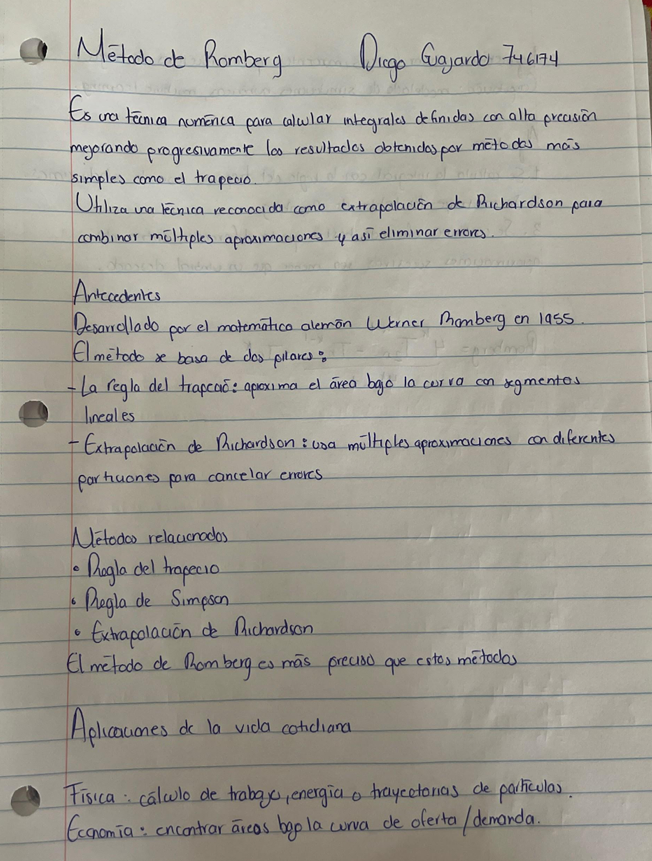 Método de Romberg Diego Gajardo 746174
Es una técnica numérica para calcular integrales definidas con alta precisión
mejorando progresivamente los resultados obtenidos por métodos más
simples como el trapecio.
Utiliza una técnica reconocida como extrapolación de Richardson para
combinar múltiples aproximaciones y así eliminar errores.
Antecedentes
Desarrollado por el matemático alemán Werner Romberg en 1955.
El método se basa de dos pilares:
- La regla del trapecio: aproxima el área bajo la curva con segmentos
lineales
- Extrapolación de Richardson: usa múltiples aproximaciones con diferentes
particiones para cancelar errores
Métodos relacionados
• Regla del trapecio
• Regla de Simpson
• Extrapolación de Richardson
El método de Romberg es más preciso que estos métodos
Aplicaciones de la vida cotidiana
Física: cálculo de trabajo, energía o trayectorias de partículas.
Economía: encontrar áreas bajo la curva de oferta/demanda.